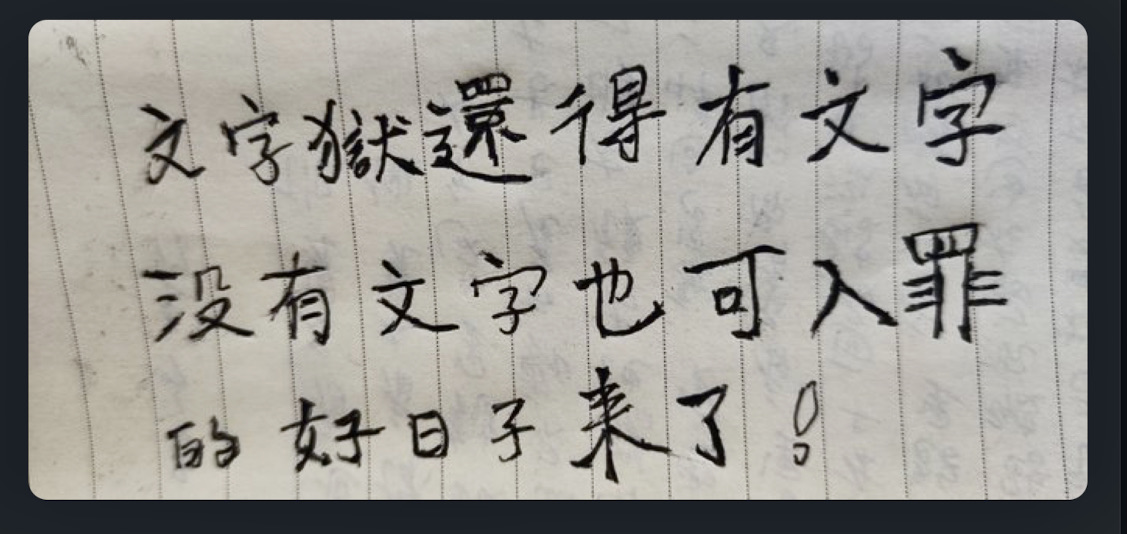 文字獄還得有文字
没有文字也可入罪
的好日子来了！